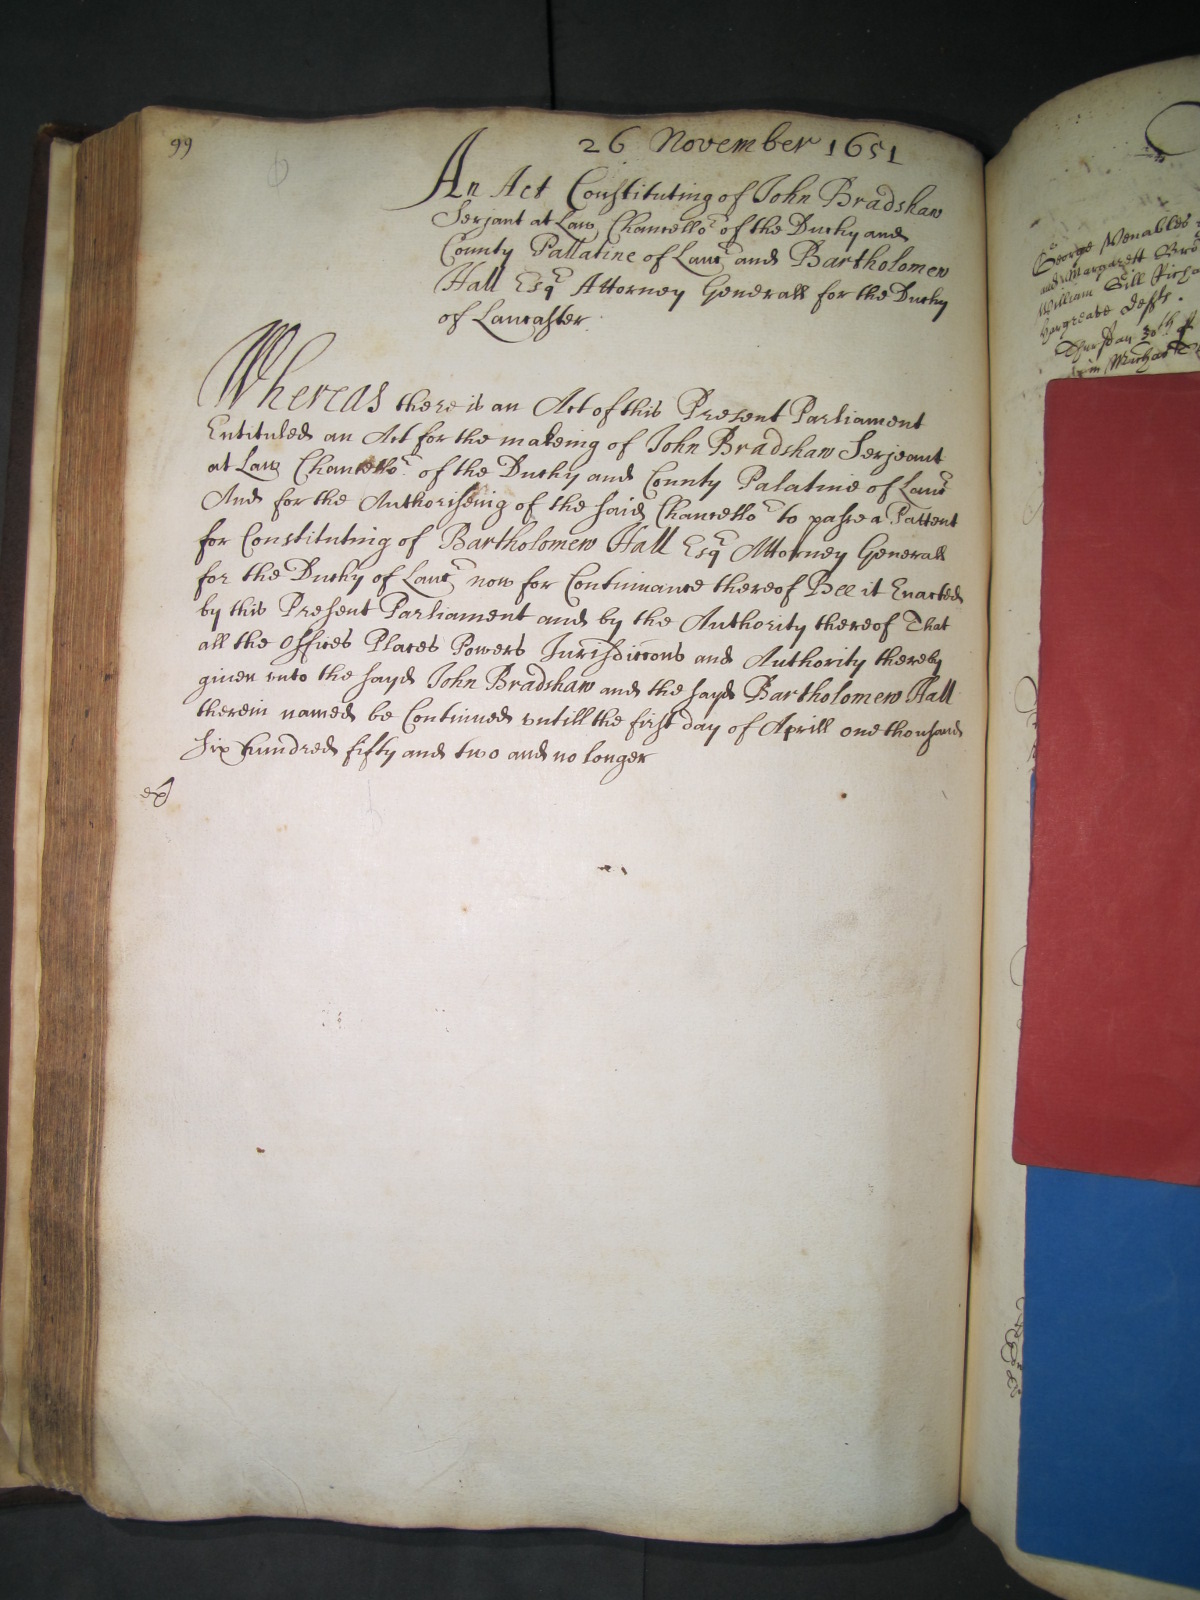 99
26 November 1651
An Act Constituting of John Bradshaw
Serjant at Law, Chancello.r of the Duchy and
County Pallatine of Lanc.r and Bartholomew
Hall Esq.r Attorney Generall for the Duchy
of Lancaster.
Whereas there is an Act of this Present Parliament
Entituled an Act for the makeing of John Bradshaw Serjeant
at Law Chancello.r of the Duchy and County Palatine of Lanc.r
And for the Authoriseing of the said Chancello.r to passe a Pattent
for Constituting of Bartholomew Hall Esq.r Attorney Generall
for the Duchy of Lanc.r now for Continuance thereof Bee it Enacted
by this Present Parliament and by the Authority thereof That
all the offices Places Powers Jurisdiccons and Authority thereby
given unto the sayd John Bradshaw and the sayd Bartholomew Hall
therein named be Continued vntill the first day of Aprill one thousand
six hundred fifty and two and no longer
ex
George Venables
and Margarett
William Sill